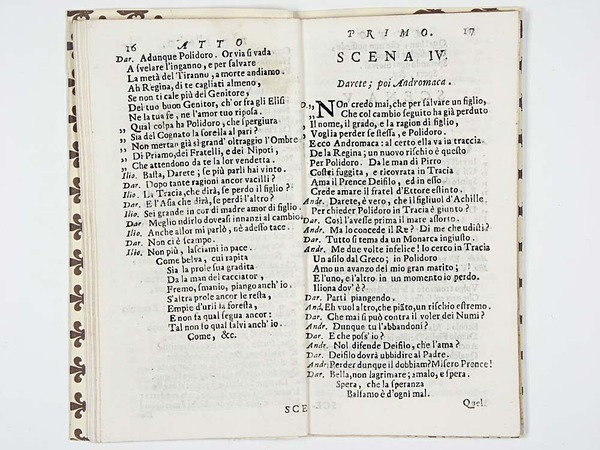 16 ATTO
Dar. Adunque Polidoro. Or via si vada
A svelare l'inganno, e per salvare
La metà del Tiranno, a morte andiamo.
Ah Regina, di te cagliati almeno,
Se non ti cale più del Genitore,
Del tuo buon Genitor, ch'or fra gli Elisi
Ne la tua fe, ne l'amor tuo riposa.
„ Qual colpa ha Polidoro, che spergiura
„ Sia del Cognato la sorella al pari?
„ Non mertan già sì grand' oltraggio l'Ombre
„ Di Priamo, dei Fratelli, e dei Nipoti,
„ Che attendono da te la lor vendetta.
Ilio. Basta, Darete; sia più parli hai vinto.
Dar. Dopo tante ragioni ancor vacilli?
Ilio. La Tracia, che dirà, se perdo il figlio?
Dar. E l'Asia che dirà, se perdi l'altro?
Ilio. Sei grande in cor di madre amor di figlio.
Dar. Meglio udirlo doveasi innanzi al cambio.
Ilio. Anche allor mi parlò, nè adesso tace.
Dar. Non ci è scampo.
Ilio. Non più, lasciami in pace.
Come belva, cui rapita
Sia la prole sua gradita
Da la man del cacciator,
Fremo, smanio, piango anch' io.
S'altra prole ancor le resta,
Empie d'urli la foresta,
E non fa qual segua ancor:
Tal non so qual salvi anch' io.
Come, &c.
SCE
PRIMO. 17
SCENA IV.
Darete; poi Andromaca.
D., „ NOn credo mai, che per salvare un figlio,
„ Che col cambio seguito ha già perduto
Il nome, il grado, e la ragion di figlio,
Voglia perder se stessa, e Polidoro.
Ecco Andromaca: al certo ella va in traccia
De la Regina; un nuovo rischio è questo
Per Polidoro. Da le man di Pirro
Costei fuggita, e ricovrata in Tracia
Ama il Prence Deifilo, ed in esso
Crede amare il fratel d'Ettore estinto.
Andr. Darete, è vero, che il figliuol d'Achille
Per chieder Polidoro in Tracia è giunto?
Dar. Così l'avesse prima il mare assorto.
Andr. Ma lo concede il Re? Di me che udisti?
Dar. Tutto si tema da un Monarca ingiusto.
Andr. Me due volte infelice! Io cerco in Tracia
Un asilo dal Greco; in Polidoro
Amo un avanzo del mio gran marito;
E l'uno, e l'altro in un momento io perdo.
Iliona dov'è?
Dar. Partì piangendo.
And. Eh vuol altro, che piãto, un rischio estremo.
Dar. Che mai si può contra il voler dei Numi?
Andr. Dunque tu l'abbandoni?
Dar. E che poss' io?
Andr. Nol difende Deifilo, che l'ama?
Dar. Deifilo dovrà ubbidire al Padre.
Andr. Perder dunque il dobbiam? Misero Prence!
Dar. Bella, non lagrimare; amalo, e spera.
Spera, che la speranza
Balsamo è d'ogni mal.
Quel